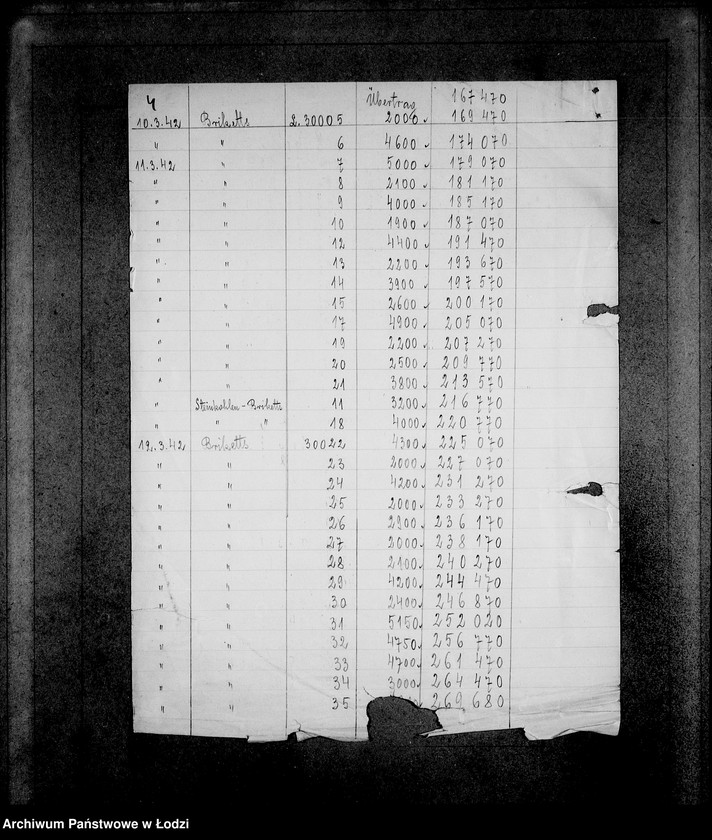 4 Übertrag 167 470
10.3.42 Briketts L. 30005 2000 169 470
" " 6 4600 174 070
11.3.42 " 7 5000 179 070
" " 8 2100 181 170
" " 9 4000 185 170
" " 10 1900 187 070
" " 12 4400 191 470
" " 13 2200 193 670
" " 14 3900 197 570
" " 15 2600 200 170
" " 17 4900 205 070
" " 19 2200 207 270
" " 20 2500 209 770
" " 21 3800 213 570
" Steinkohlen-Briketts 11 3200 216 770
" " " 18 4000 220 770
12.3.42 Briketts 30022 4300 225 070
" " 23 2000 227 070
" " 24 4200 231 270
" " 25 2000 233 270
" " 26 2900 236 170
" " 27 2000 238 170
" " 28 2100 240 270
" " 29 4200 244 470
" " 30 2400 246 870
" " 31 5150 252 020
" " 32 4750 256 770
" " 33 4700 261 470
" " 34 3000 264 470
" " 35 269 680
Archiwum Państwowe w Łodzi